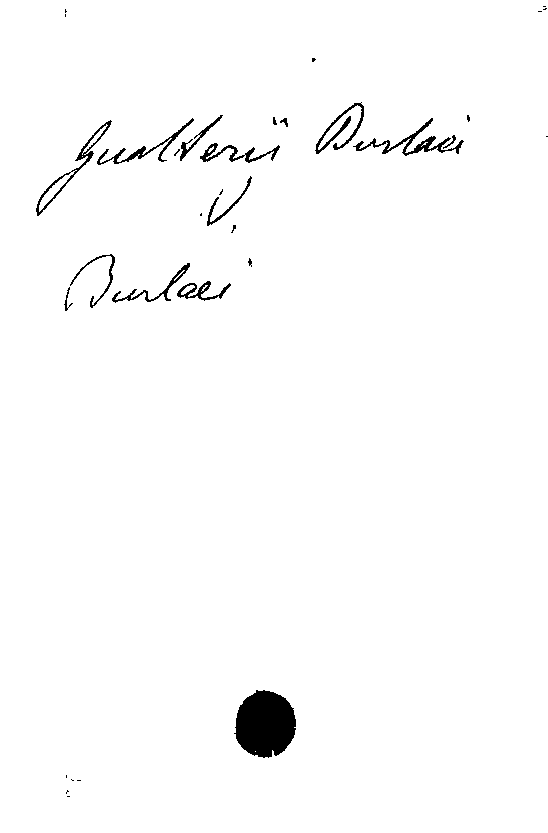 Gualterii Burlaei
V.
Burlaei